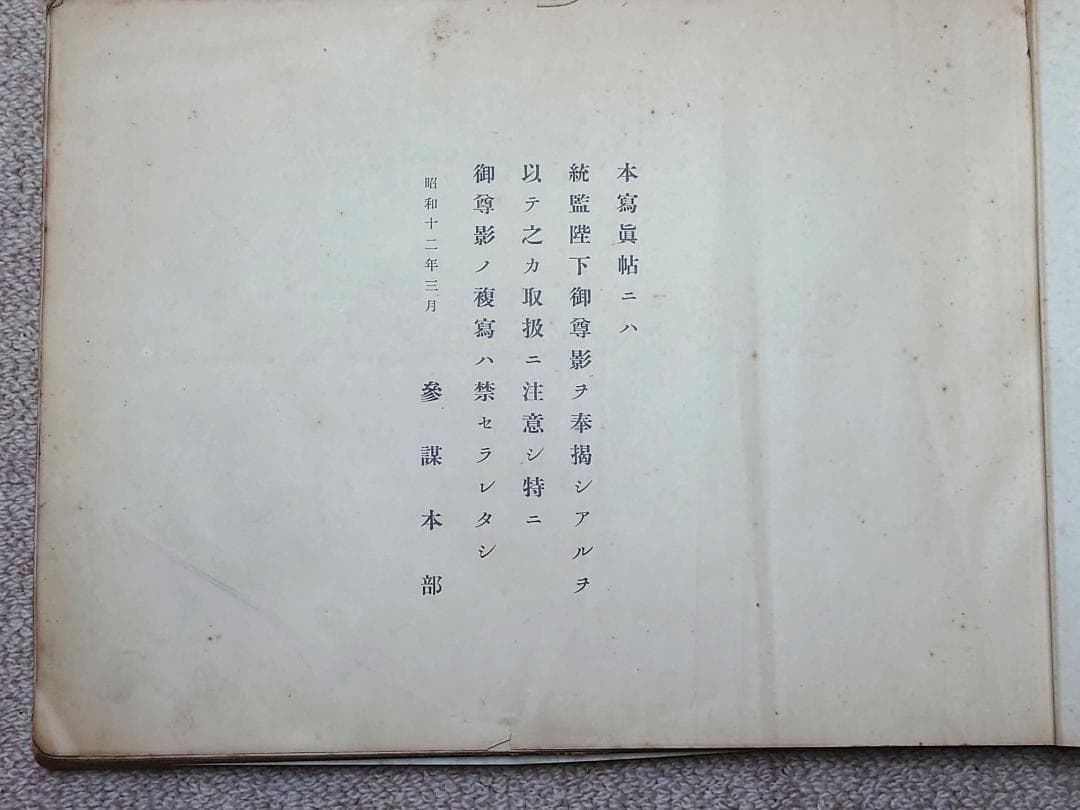 本寫眞帖ニハ
統監陛下御尊影ヲ奉揭シアルヲ
以テ之カ取扱ニ注意シ特ニ
御尊影ノ複寫ハ禁セラレタシ
昭和十二年三月 參謀本部